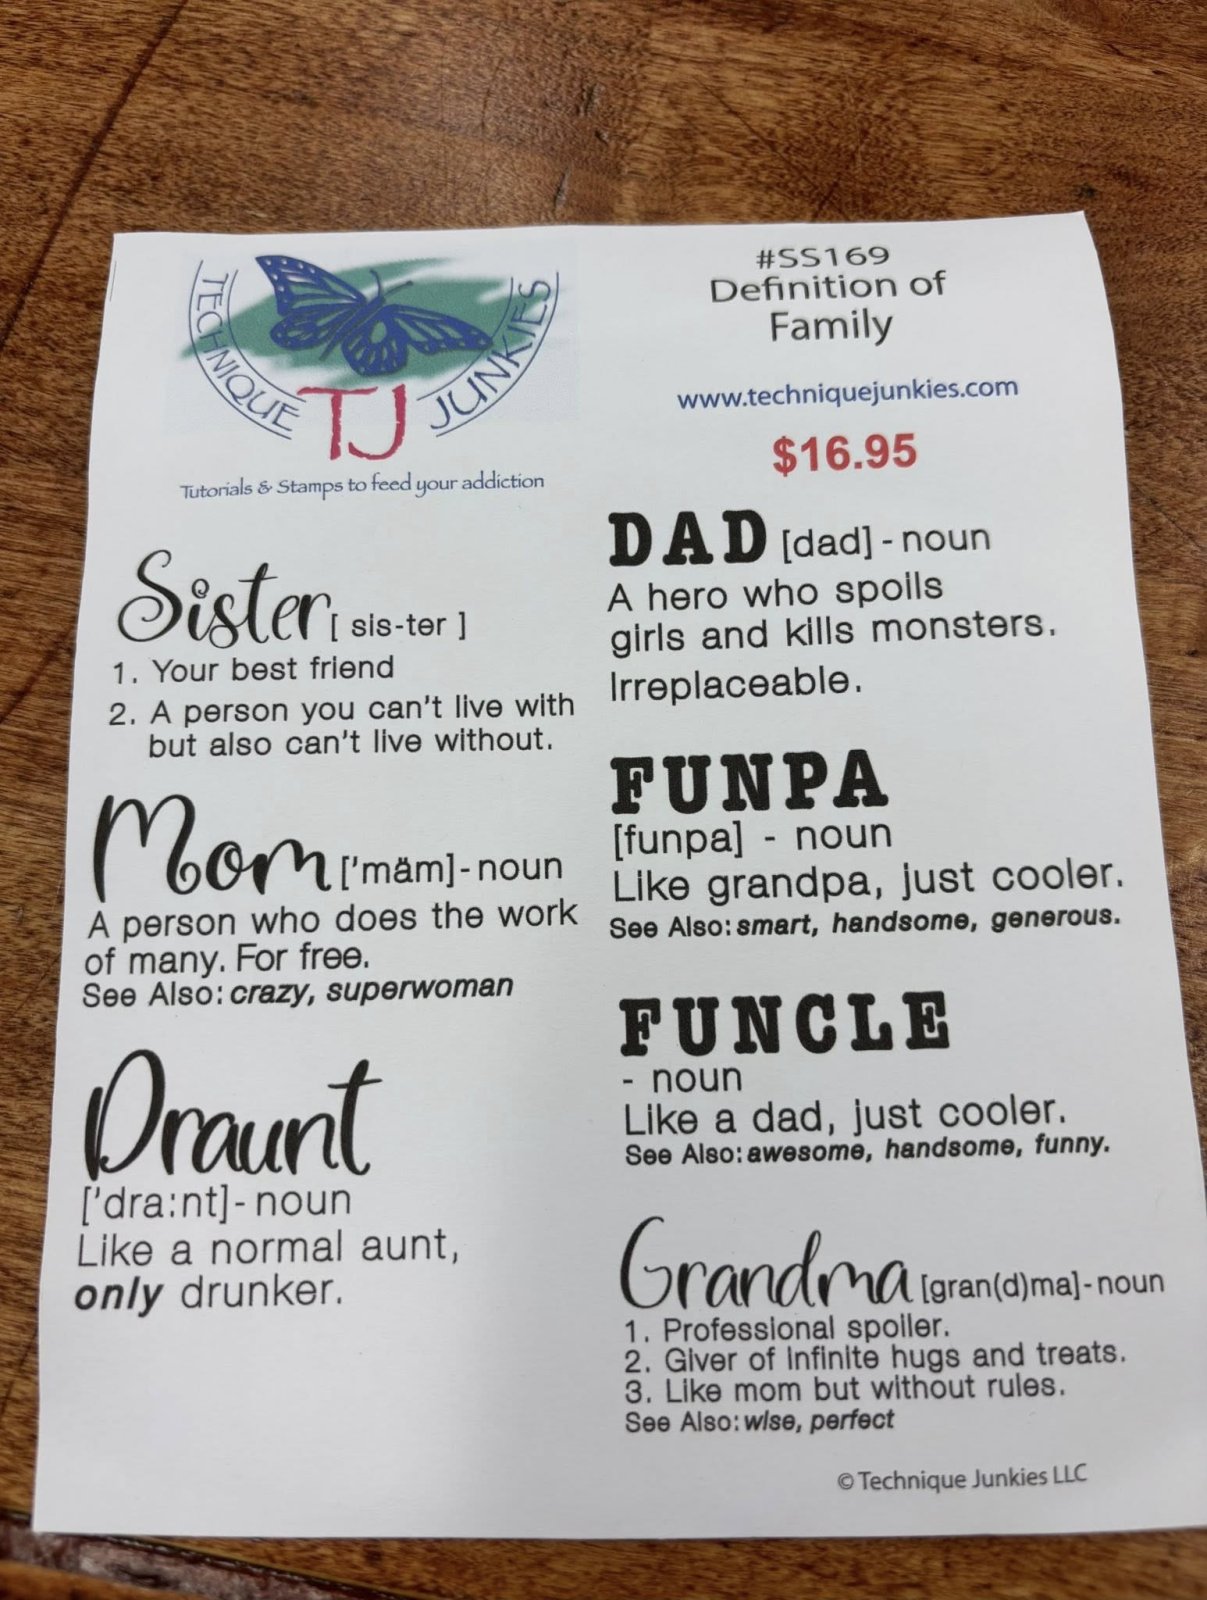 TECHNIQUE TJ JUNKIES
Tutorials & Stamps to feed your addiction
#SS169
Definition of
Family
www.techniquejunkies.com
$16.95
Sister [ sis-ter ]
1. Your best friend
2. A person you can't live with
but also can't live without.
Mom ['mäm]-noun
A person who does the work
of many. For free.
See Also: crazy, superwoman
Draunt
['dra:nt]-noun
Like a normal aunt,
only drunker.
DAD [dad] - noun
A hero who spoils
girls and kills monsters.
Irreplaceable.
FUNPA
[funpa] - noun
Like grandpa, just cooler.
See Also: smart, handsome, generous.
FUNCLE
- noun
Like a dad, just cooler.
See Also: awesome, handsome, funny.
Grandma [gran(d)ma]-noun
1. Professional spoiler.
2. Giver of infinite hugs and treats.
3. Like mom but without rules.
See Also: wise, perfect
© Technique Junkies LLC